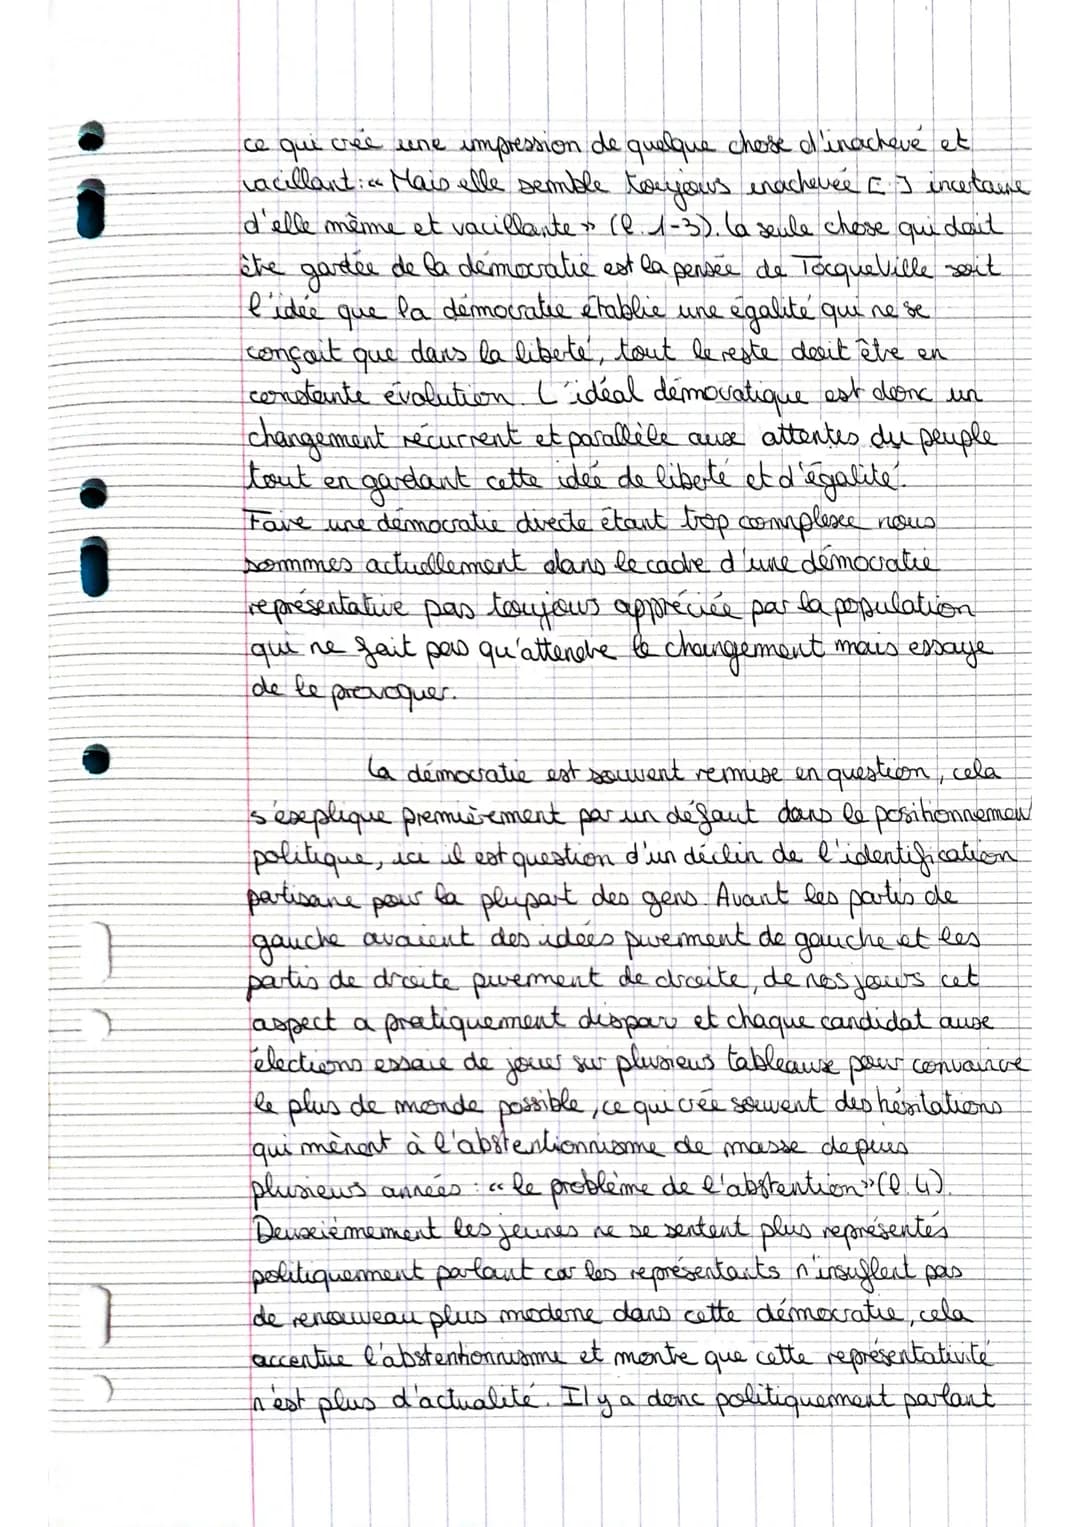 ce qui crée une impression de quelque chose d'inachevé et
vacillant : « Mais elle semble toujours inachevée [..] incertaine
d'elle même et vacillante » (l. 1-3). La seule chose qui doit
être gardée de la démocratie est la pensée de Tocqueville soit
l'idée que la démocratie établie une égalité qui ne se
conçoit que dans la liberté, tout le reste doit être en
constante évolution. L'idéal démocratique est donc un
changement récurrent et parallèle aux attentes du peuple
tout en gardant cette idée de liberté et d'égalité.
Faire une démocratie directe étant trop complexe nous
sommes actuellement dans le cadre d'une démocratie
représentative pas toujours appréciée par la population
qui ne fait pas qu'attendre le changement mais essaye
de le provoquer.
La démocratie est souvent remise en question, cela
s'explique premièrement par un défaut dans le positionnement
politique, ici il est question d'un déclin de l'identification
partisane pour la plupart des gens. Avant les partis de
gauche avaient des idées purement de gauche et les
partis de droite purement de droite, de nos jours cet
aspect a pratiquement disparu et chaque candidat aux
élections essaie de jouer sur plusieurs tableaux pour convaincre
le plus de monde possible, ce qui crée souvent des hésitations
qui mènent à l'abstentionnisme de masse depuis
plusieurs années : « le problème de l'abstention » (l. 4).
Deuxièmement les jeunes ne se sentent plus représentés
politiquement parlant car les représentants n'insuflent pas
de renouveau plus moderne dans cette démocratie, cela
accentue l'abstentionnisme et montre que cette représentativité
n'est plus d'actualité. Il y a donc politiquement parlant